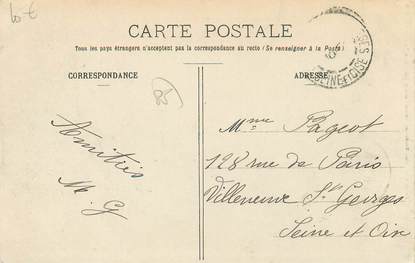 10 €
CARTE POSTALE
Tous les pays étrangers n'acceptent pas la correspondance au recto (Se renseigner à la Poste)
CORRESPONDANCE
ADRESSE
Amitiés
M. G
Mme Pageot
128 rue de Paris
Villeneuve St Georges
Seine et Oise